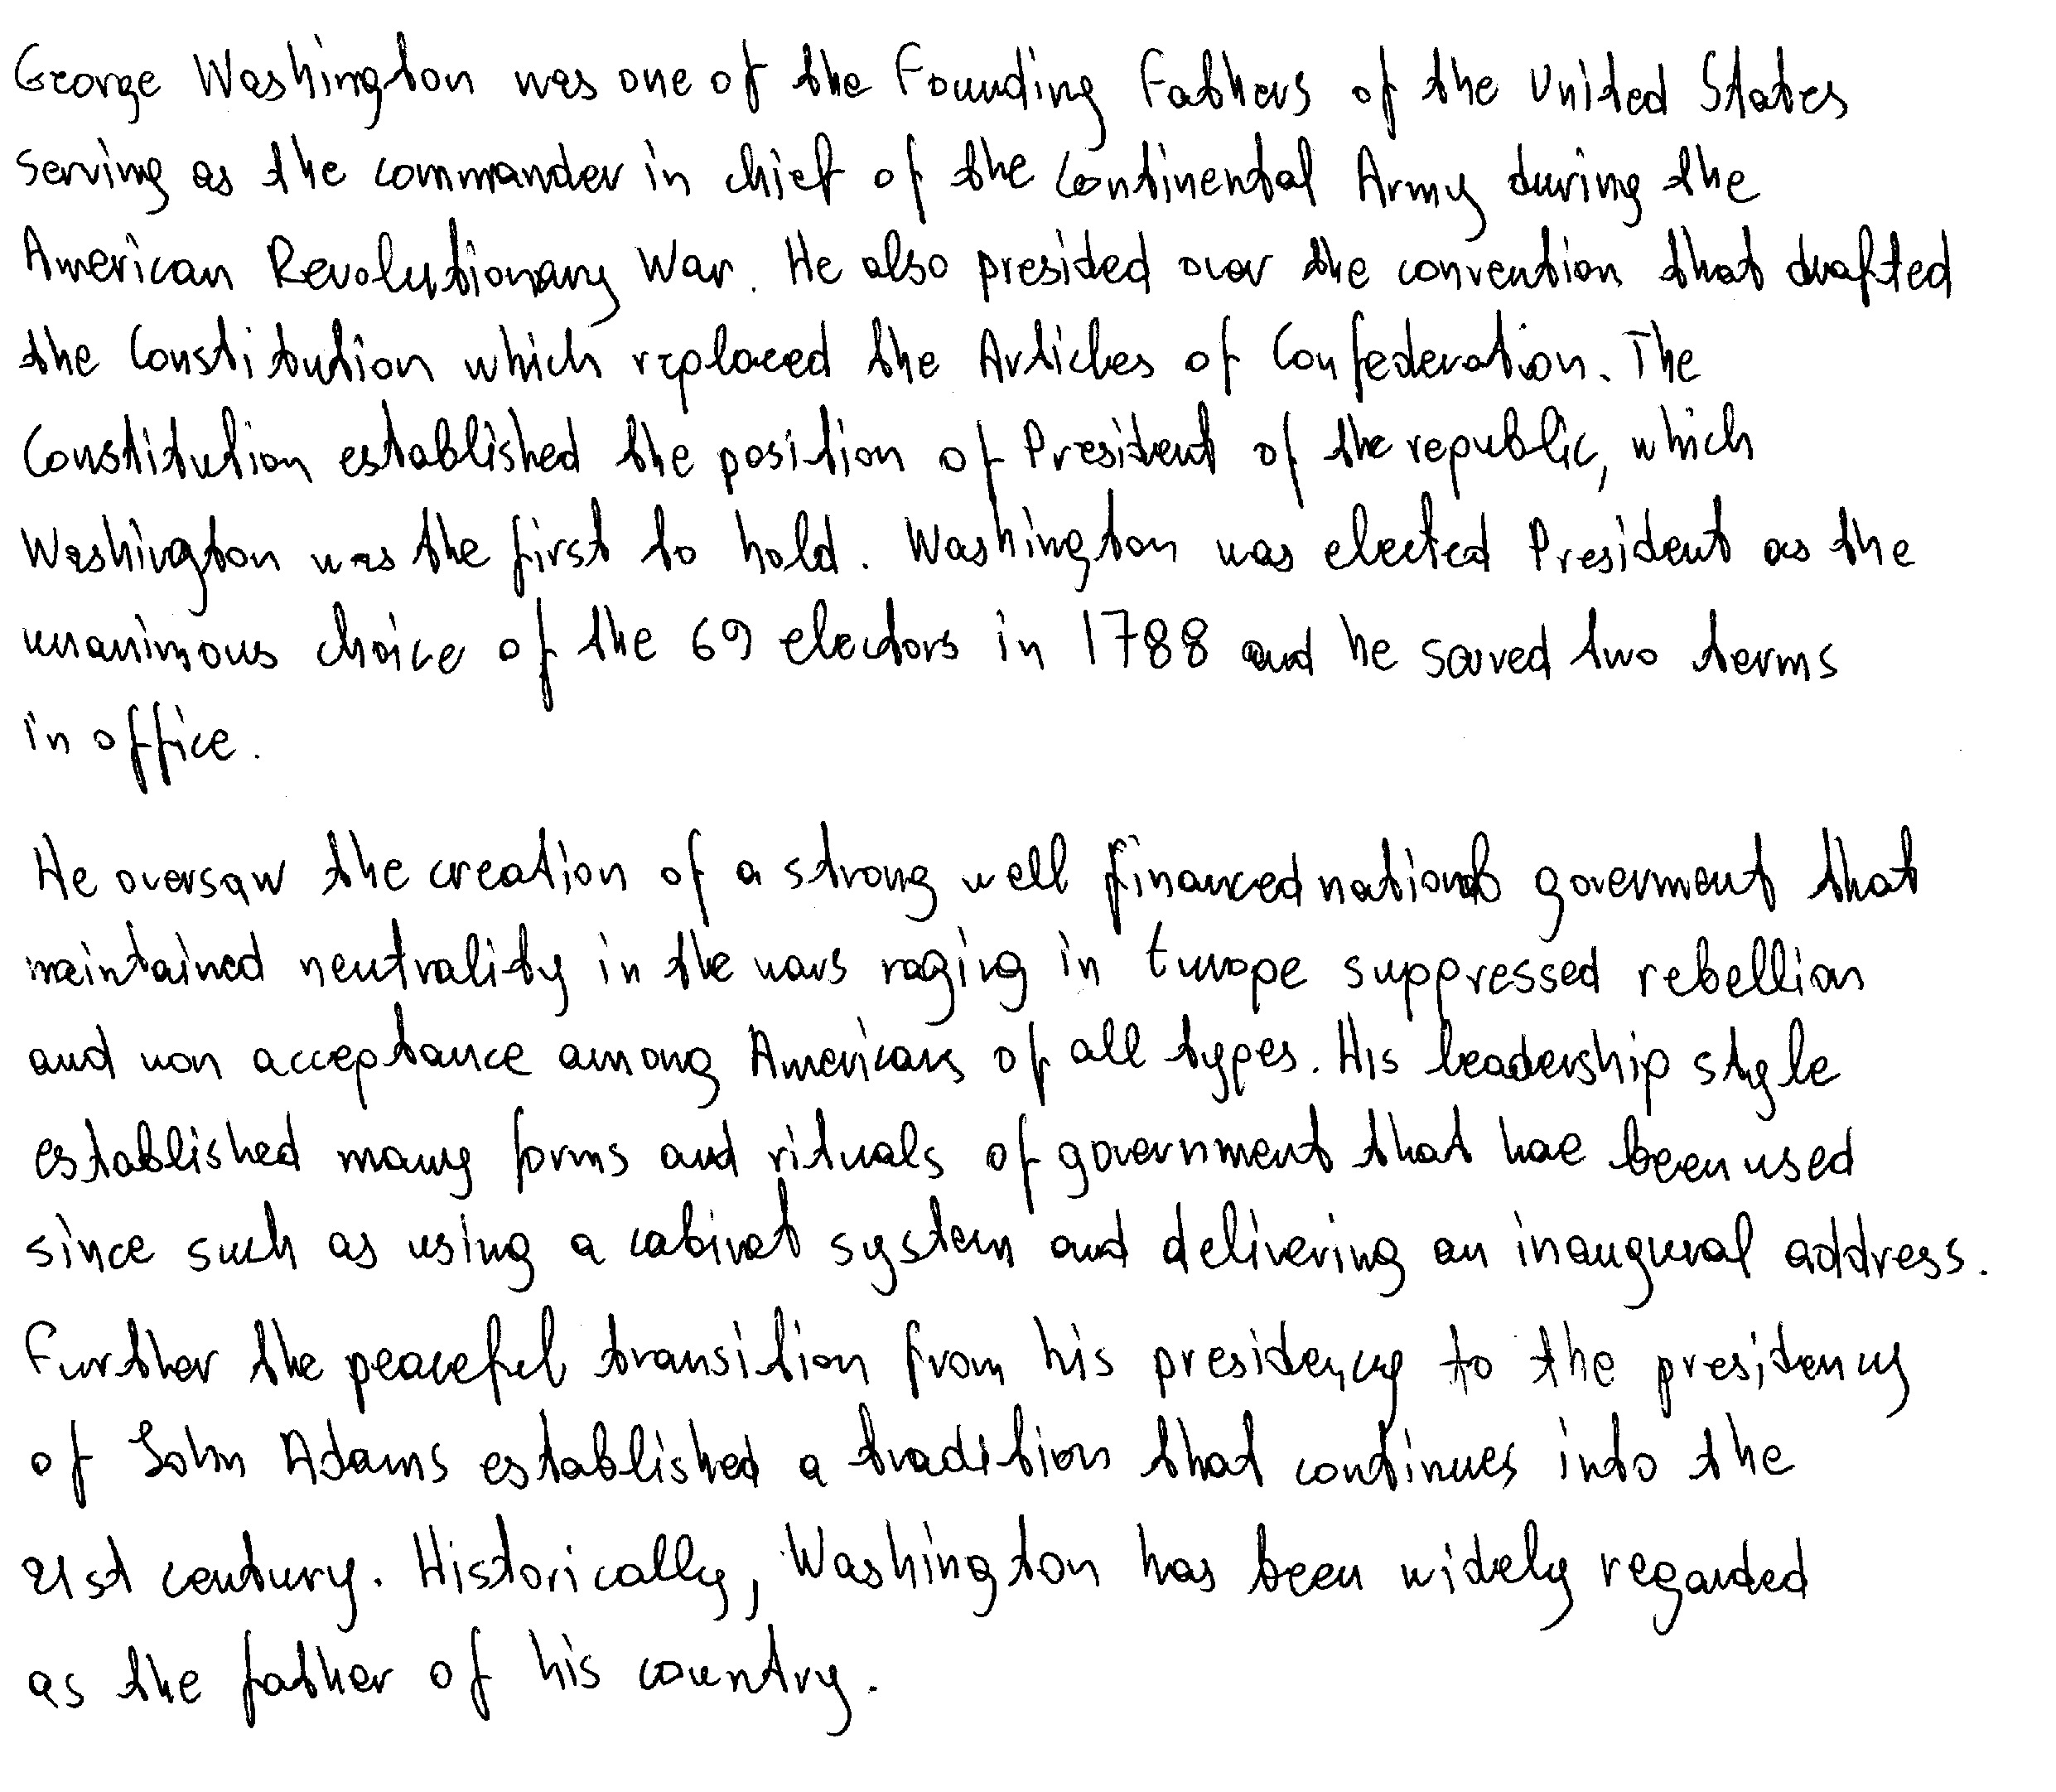 George Washington was one of the Founding Fathers of the United States
serving as the commander in chief of the Continental Army during the
American Revolutionary War. He also presided over the convention that drafted
the Constitution which replaced the Articles of Confederation. The
Constitution established the position of President of the republic, which
Washington was the first to hold. Washington was elected President as the
unanimous choice of the 69 electors in 1788 and he served two terms
in office.
He oversaw the creation of a strong well financed national goverment that
maintained neutrality in the wars raging in Europe suppressed rebellion
and won acceptance among Americans of all types. His leadership style
established many forms and rituals of government that hae been used
since such as using a cabinet system and delivering an inaugural address.
Further the peaceful transition from his presidency to the presidency
of John Adams established a tradition that continues into the
21st century. Historically, Washington has been widely regarded
as the father of his country.